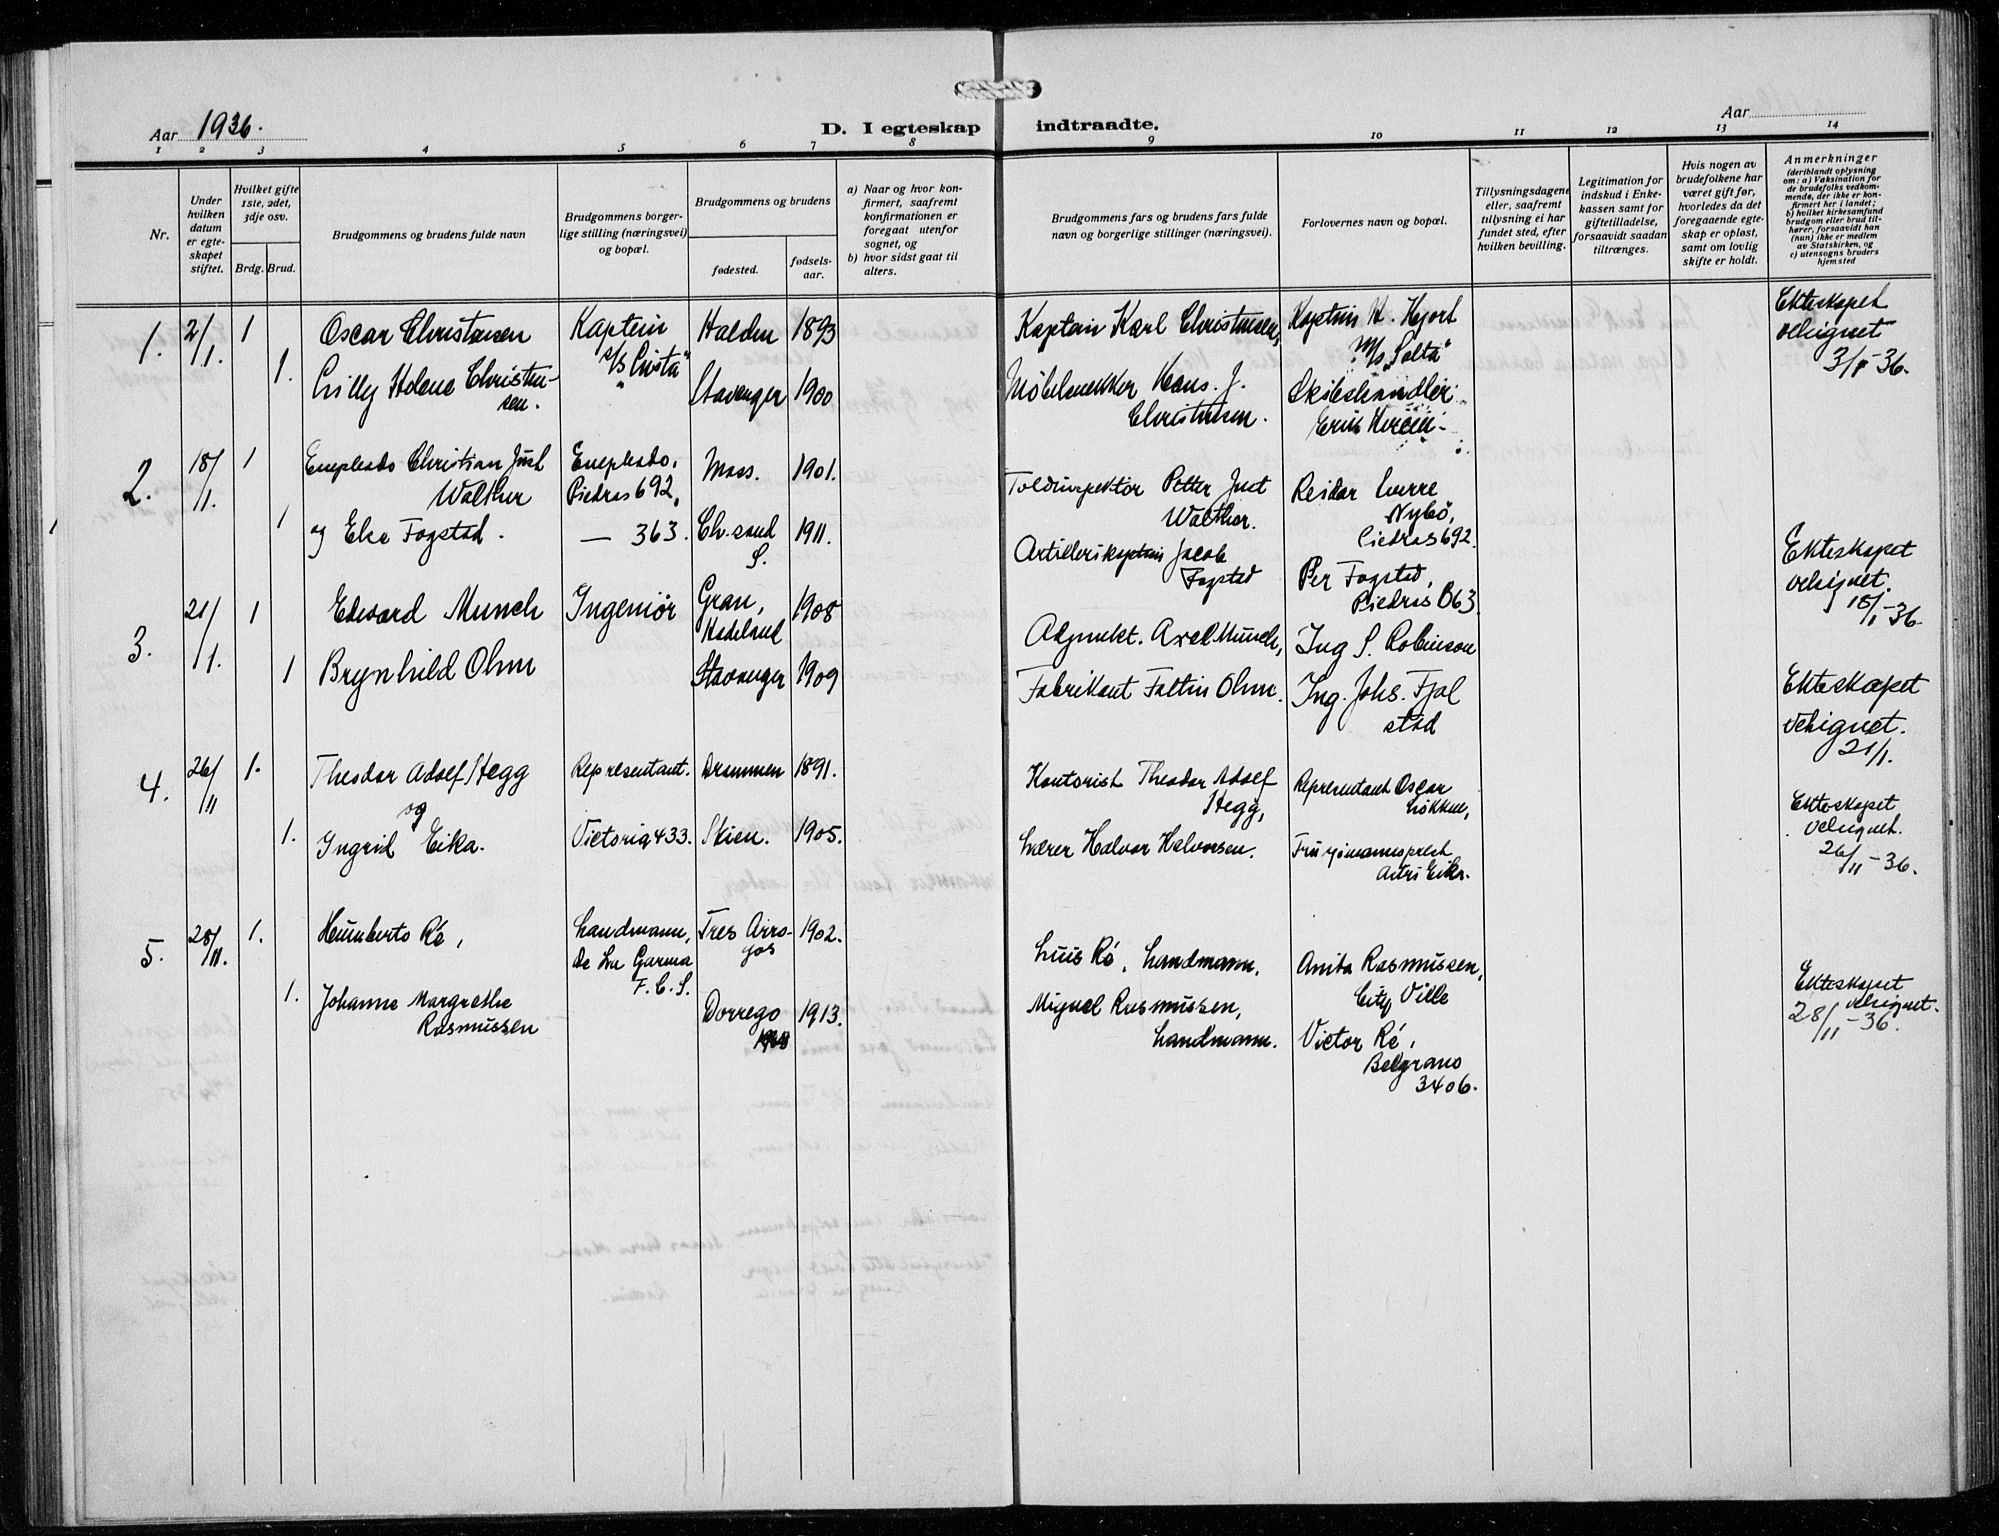 Aar 1936.
D. I egteskap indtraadte.
Aar
1 2 3 4 5 6 7 8 9 10 11 12 13 14
Nr.
Under hvilken datum er egteskapet stiftet.
Hvilket gifte 1ste, 2det, 3dje osv.
Brdg. Brud.
Brudgommens og brudens fulde navn
Brudgommens borgerlige stilling (næringsvei) og bopæl.
Brudgommens og brudens
fødested.
fødselsaar.
a) Naar og hvor konfirmert, saafremt konfirmationen er foregaat utenfor sognet, og
b) hvor sidst gaat til alters.
Brudgommens fars og brudens fars fulde navn og borgerlige stillinger (næringsvei).
Forlovernes navn og bopæl.
Tillysningsdagene eller, saafremt tillysning ei har fundet sted, efter hvilken bevilling.
Legitimation for indskud i Enkekassen samt for giftetilladelse, forsaavidt saadan tiltrænges.
Hvis nogen av brudefolkene har været gift før, hvorledes da det foregaaende egteskap er opløst, samt om lovlig skifte er holdt.
Anmerkninger (deriblandt oplysning om: a) Vaksination for de brudefolks vedkommende, der ikke er konfirmert her i landet; b) hvilket kirkesamfund brudgom eller brud tilhører, forsaavidt han (hun) ikke er medlem av Statskirken, og c) utensogns bruders hjemsted
1. 2/1. 1 Oscar Christensen Kaptein Halden 1893 Kaptein Karl Christensen, Kaptein H. Hjort M/s "Salta" Ekteskapet velsignet 3/1-36.
1. Lilly Helene Christensen. Stavanger 1900 Møbelsnekker Hans. J. Christensen. Skibshandler
2. 18/1. 1 Enepleado Christian Just Walther Enepleado, Piedras 692, Moss. 1901. Toldinspektør Petter Just Walther. Reidar Nybö, Piedras 692.
1 og Else Fogstad. — 363. Ch.sand S. 1911. Artillerikaptein Jacob Fogstad Per Fogstad, Piedras 363. Ekteskapet velsignet. 18/1-36.
3. 21/1. 1 Edvard Munch Ingeniör Gran, Hadeland 1908 Adjunkt. Axel Munch, Ing S. Robinson
1 Brynhild Ohm Stavanger 1909 Fabrikant Faltin Ohm. Ing. Johs. Fjalstad Ekteskapet velsignet. 21/1.
4. 26/11 1. Theodor Adolf Hegg Representant. Drammen 1891. Kontorist Theodor Adolf Hegg, Representant Oscar Løkken,
og
1. Ingrid Eika. Victoria 433. Skien. 1905. Lærer Halvor Halvorsen. Fru sjømannsprest Astri Eika. Ekteskapet velsignet. 26/11-36.
5. 28/11. 1. Humberto Ré, Landmann, De La Garma F.C.S. Tres Arroyos 1902. Luis Ré, Landmann, Anita Rasmussen, City Ville
1. Johanne Margrethe Rasmussen Dorrego 1913. Miguel Rasmussen, Landmann. Victor Ré, Belgrano 3406. Ekteskapet velsignet. 28/11-36.